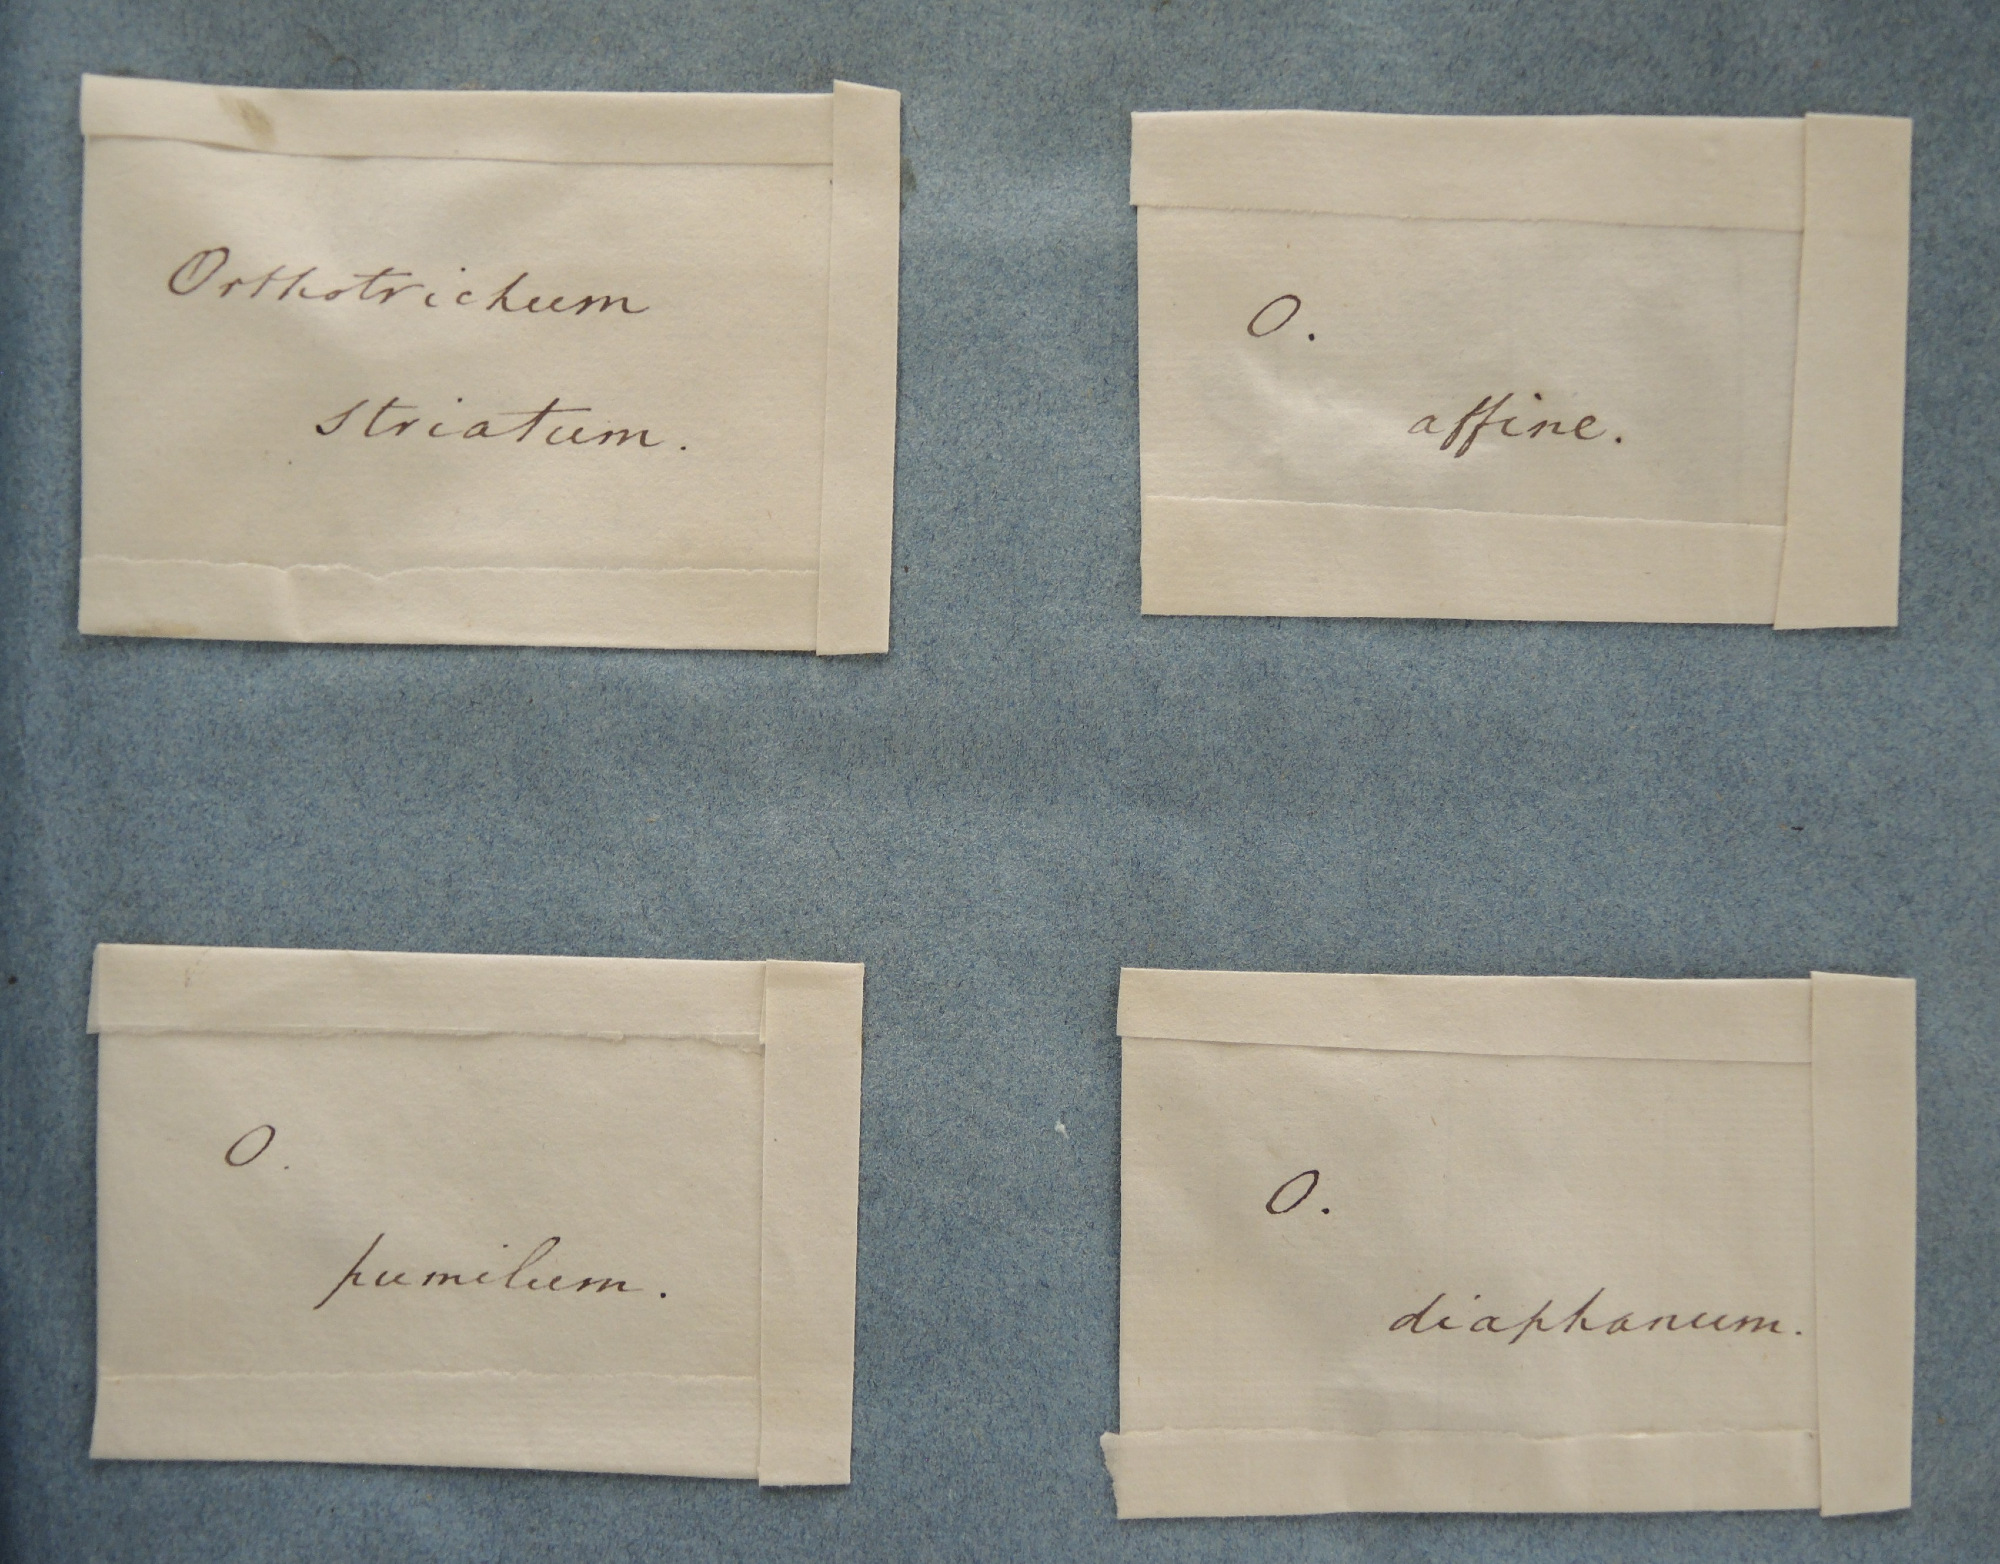 Orthotrichum
striatum.
O.
affine.
O.
pumilum.
O.
diaphanum.